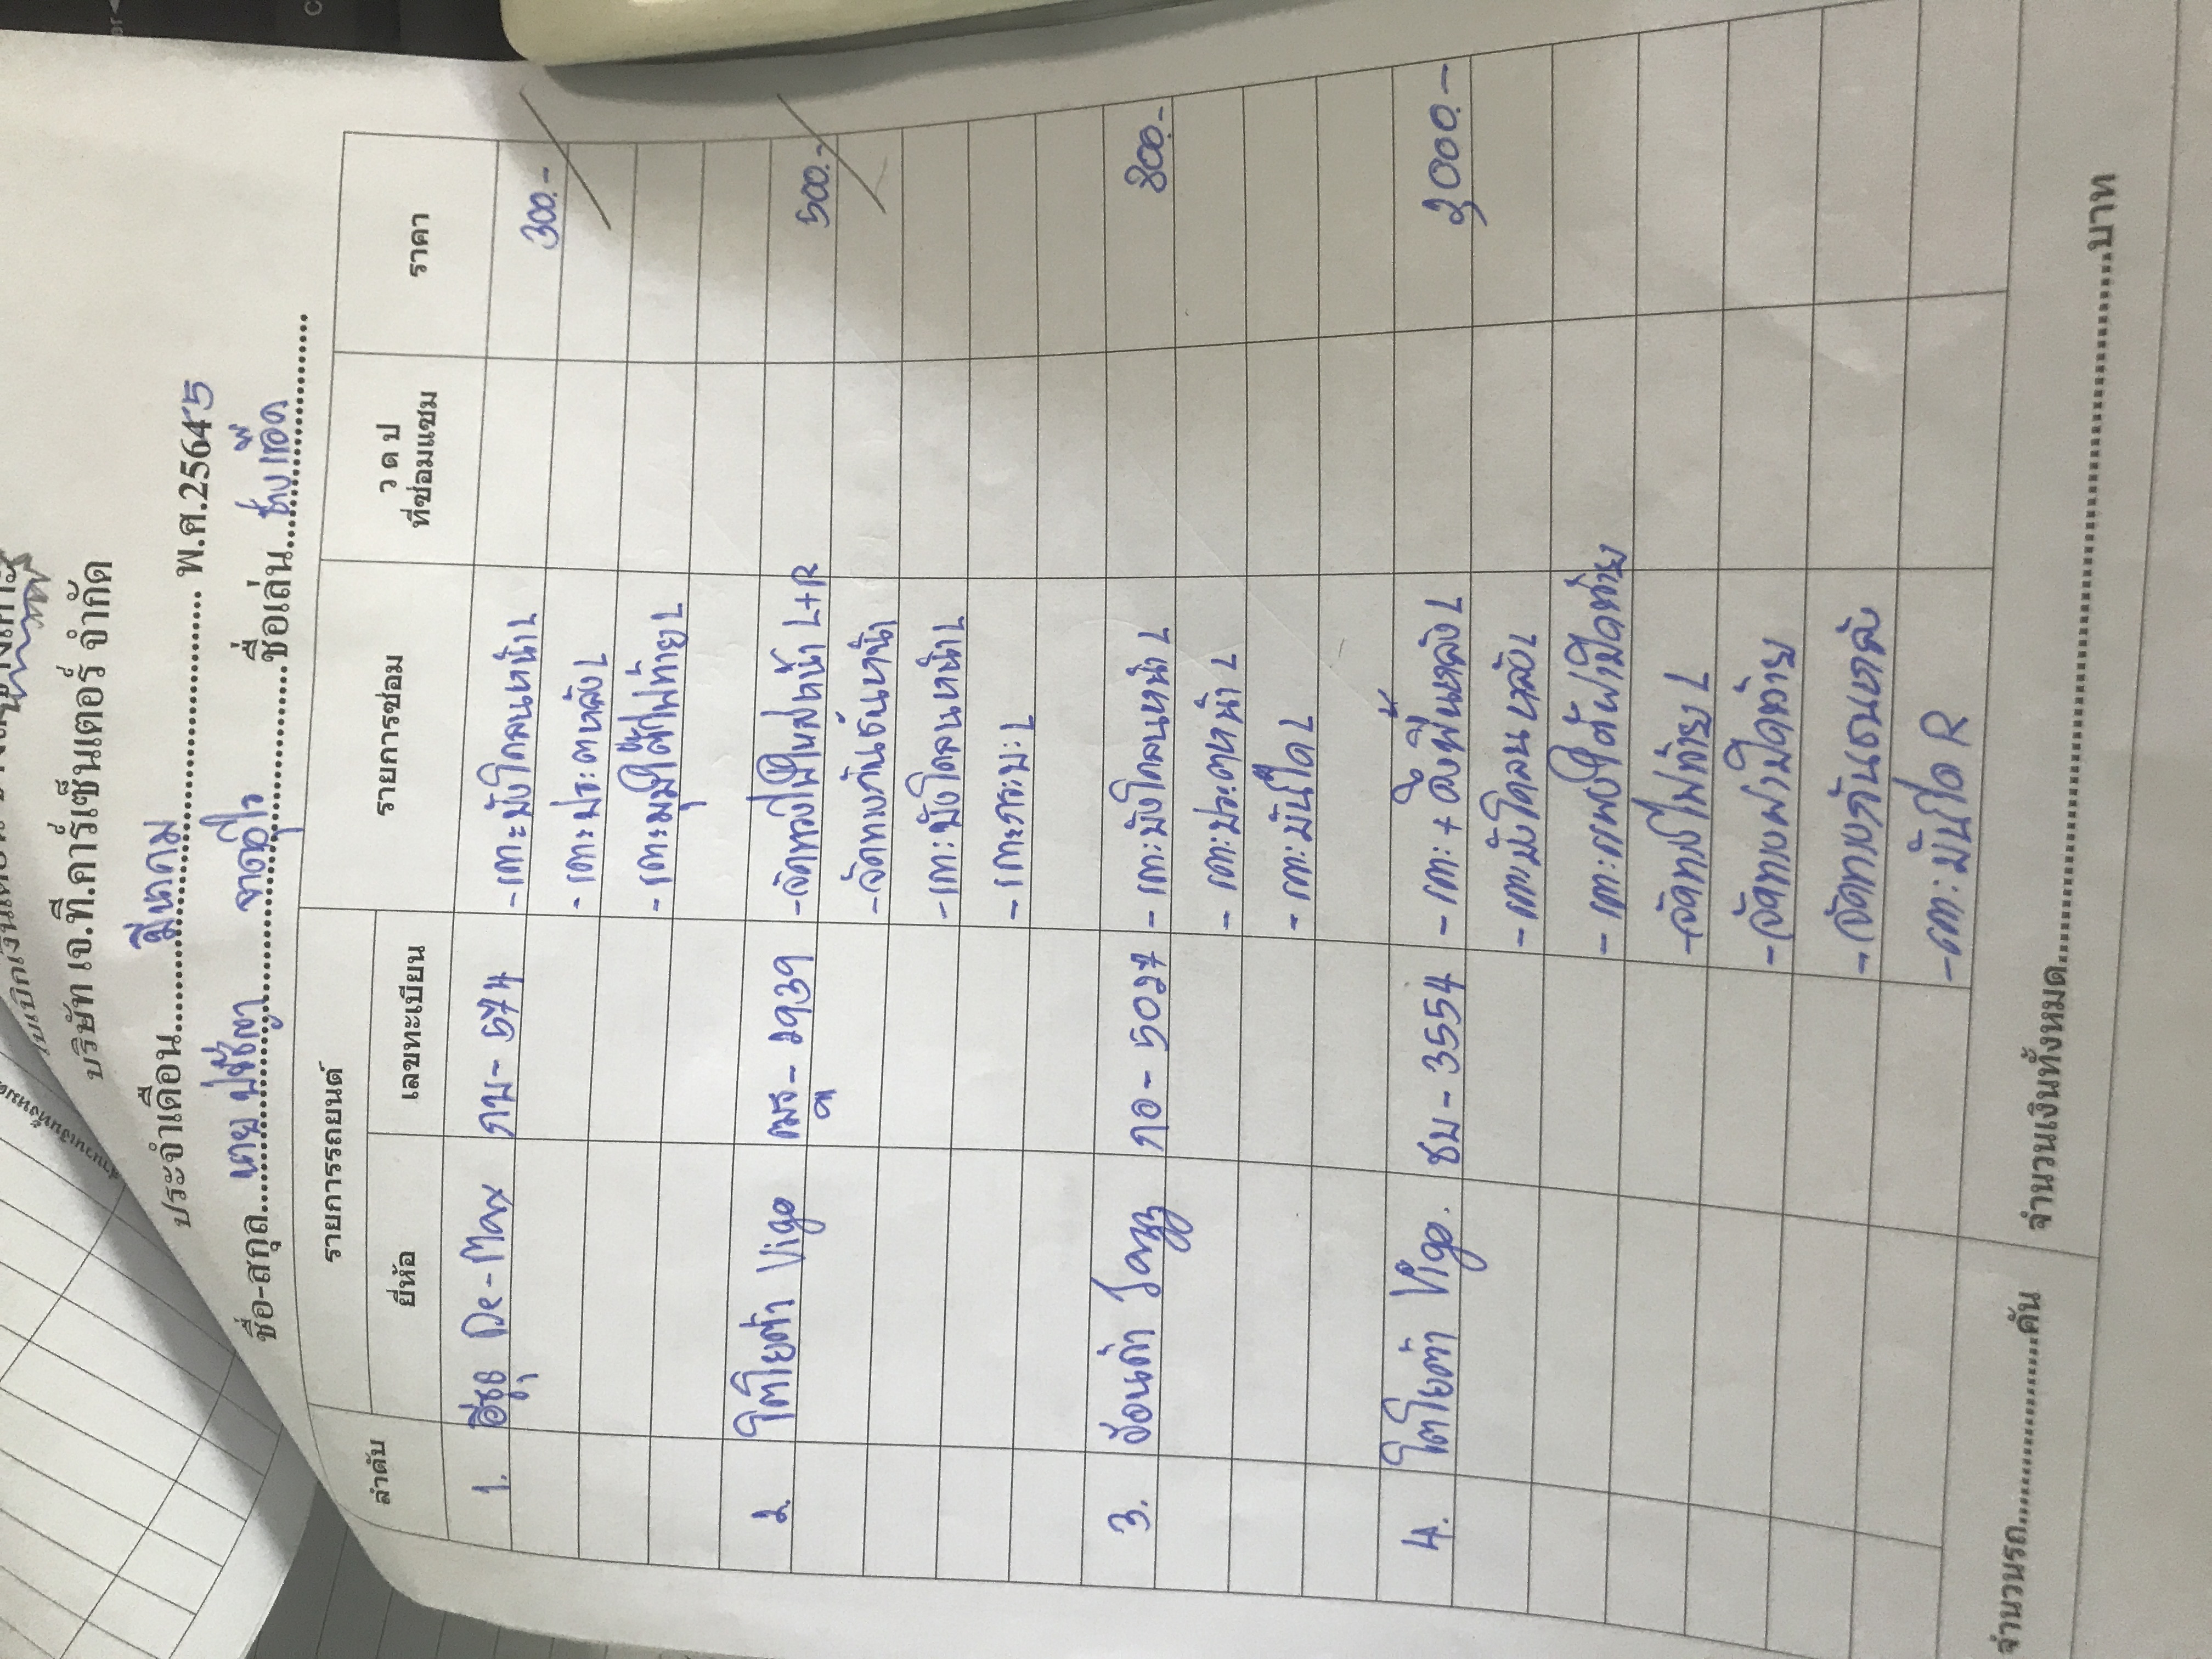 บริษัท เจ.ที.คาร์เซ็นเตอร์ จำกัด
ประจำเดือน มีนาคม พ.ศ.2564 5
ชื่อ-สกุล นาย ปรัชญา ชื่อเล่น ช่าง
ลำดับ รายการรถยนต์ รายการซ่อม ว ด ป ที่ซ่อมแซม ราคา
ยี่ห้อ เลขทะเบียน
1. อีซูซุ De-Max กบ - 574 - เคาะบังโคลนหน้า L 300.-
- เคาะประตูหลัง L
- เคาะมุมใต้ไฟท้าย L
2. โตโยต้า Vigo 2939 - จัดทรงไฟใหญ่หน้า L+R 500.-
- จัดทรงกันชนหน้า
- เคาะบังโคลนหน้า L
- เคาะกระบะ L
3. ฮอนด้า Jazz กอ - 5027 - เคาะบังโคลนหน้า L 800.-
- เคาะประตูหน้า L
- เคาะบันได L
4. โตโยต้า Vigo. ชบ - 3554 - เคาะ + ดึงพื้นหลัง L 2000.-
- เคาะบังโคลนหลัง L
- เคาะแผงใต้ฝาปิดท้าย
- จัดทรงไฟท้าย L
- จัดทรงฝาปิดท้าย
- จัดทรงกันชนหลัง
- เคาะบันได R
จำนวนรถ..........คัน จำนวนเงินทั้งหมด..........บาท